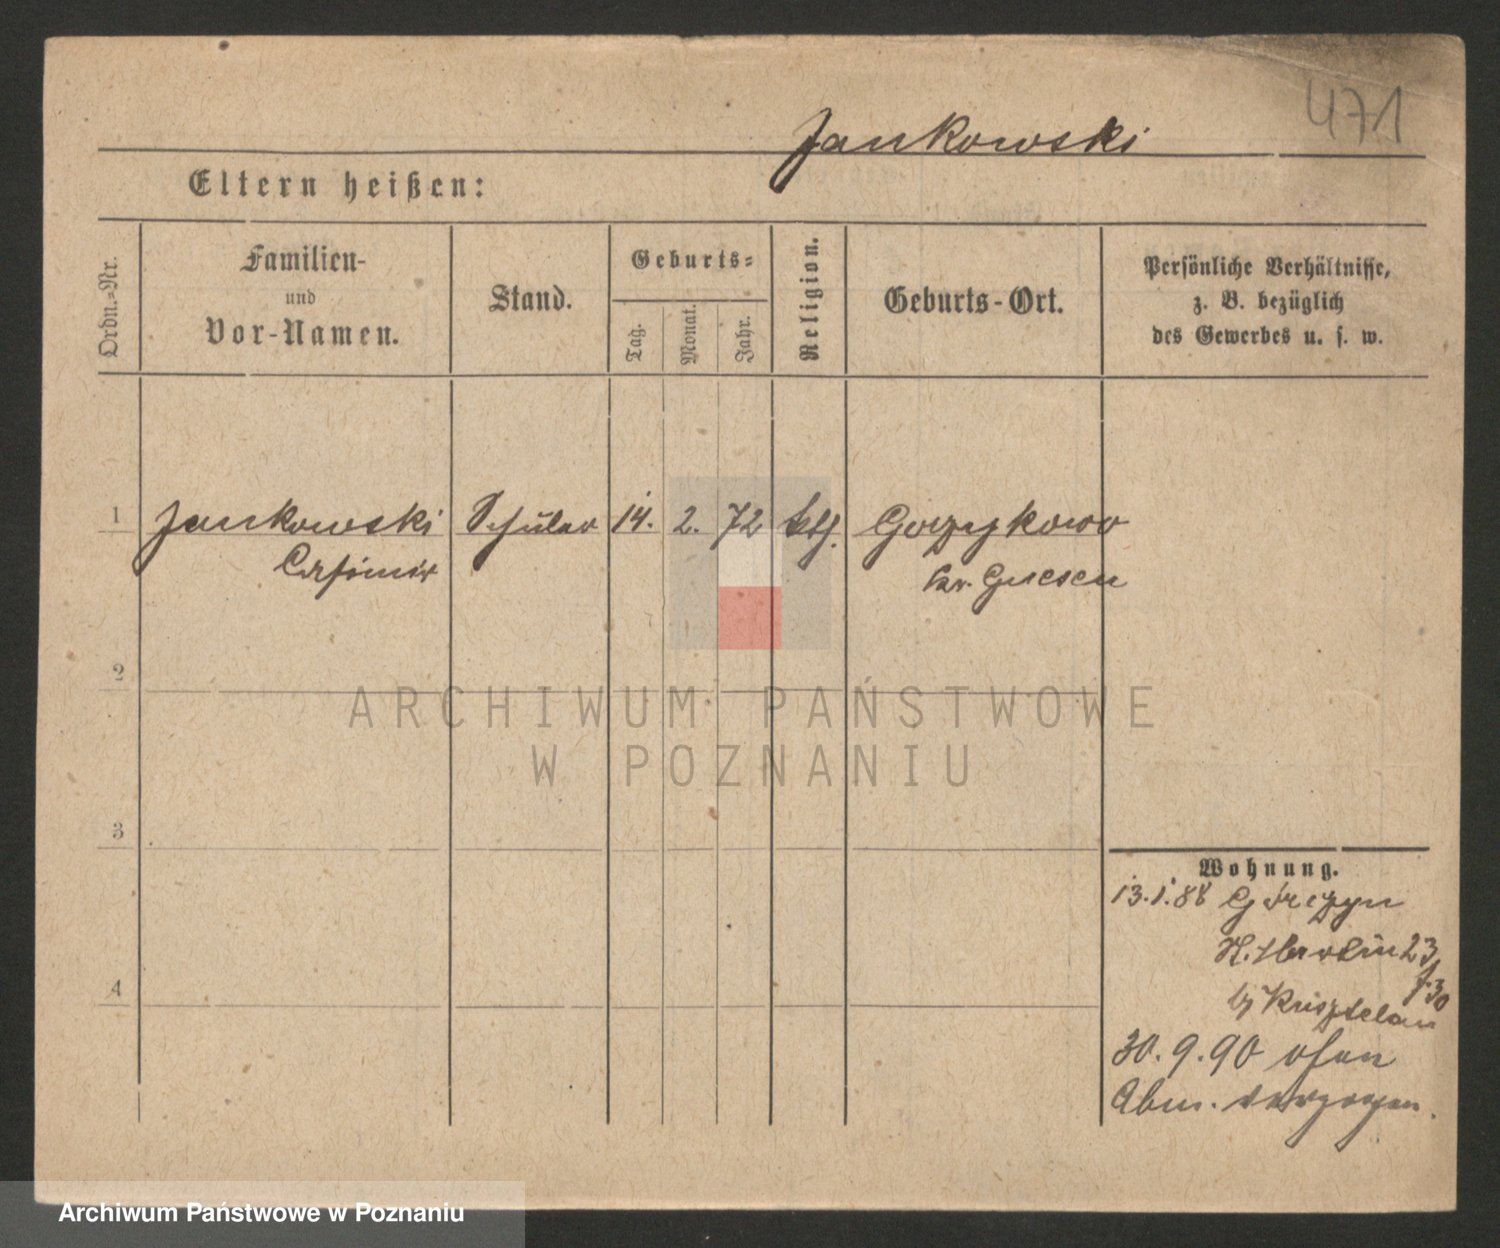 471
Jankowski
Eltern heißen:
Ordn.-Nr.
Familien-
und
Vor-Namen.
Stand.
Geburts-
Tag.
Monat.
Jahr.
Religion.
Geburts-Ort.
Persönliche Verhältnisse,
z. B. bezüglich
des Gewerbes u. s. w.
1 Jankowski Schüler 14. 2. 72 kth. Gorzykowo
Casimir Kr. Gnesen
2
ARCHIWUM PAŃSTWOWE
W POZNANIU
3
4
Wohnung.
13.1.88
23
30
bj
30.9.90 ohne
Abm. verzogen.
Archiwum Państwowe w Poznaniu